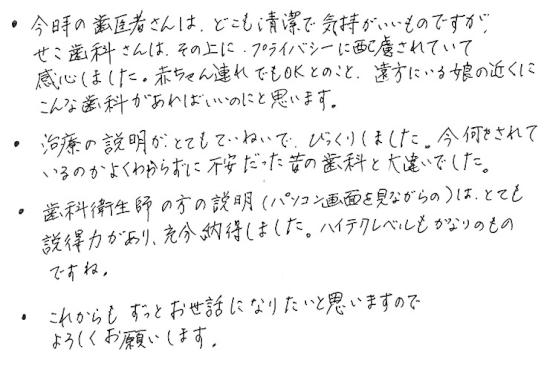 • 今時の歯医者さんは、どこも清潔で気持がいいものですが、
せこ歯科さんは、その上に、プライバシーに配慮されていて
感心しました。赤ちゃん連れでもOKとのこと、遠方にいる娘の近くに
こんな歯科があればいいのにと思います。
• 治療の説明が、とてもていねいで、びっくりしました。今何をされて
いるのかよくわからずに不安だった昔の歯科と大違いでした。
• 歯科衛生師の方の説明（パソコン画面を見ながらの）は、とても
説得力があり、充分納得しました。ハイテクレベルもかなりのもの
ですね。
• これからもずっとお世話になりたいと思いますので
よろしくお願いします。